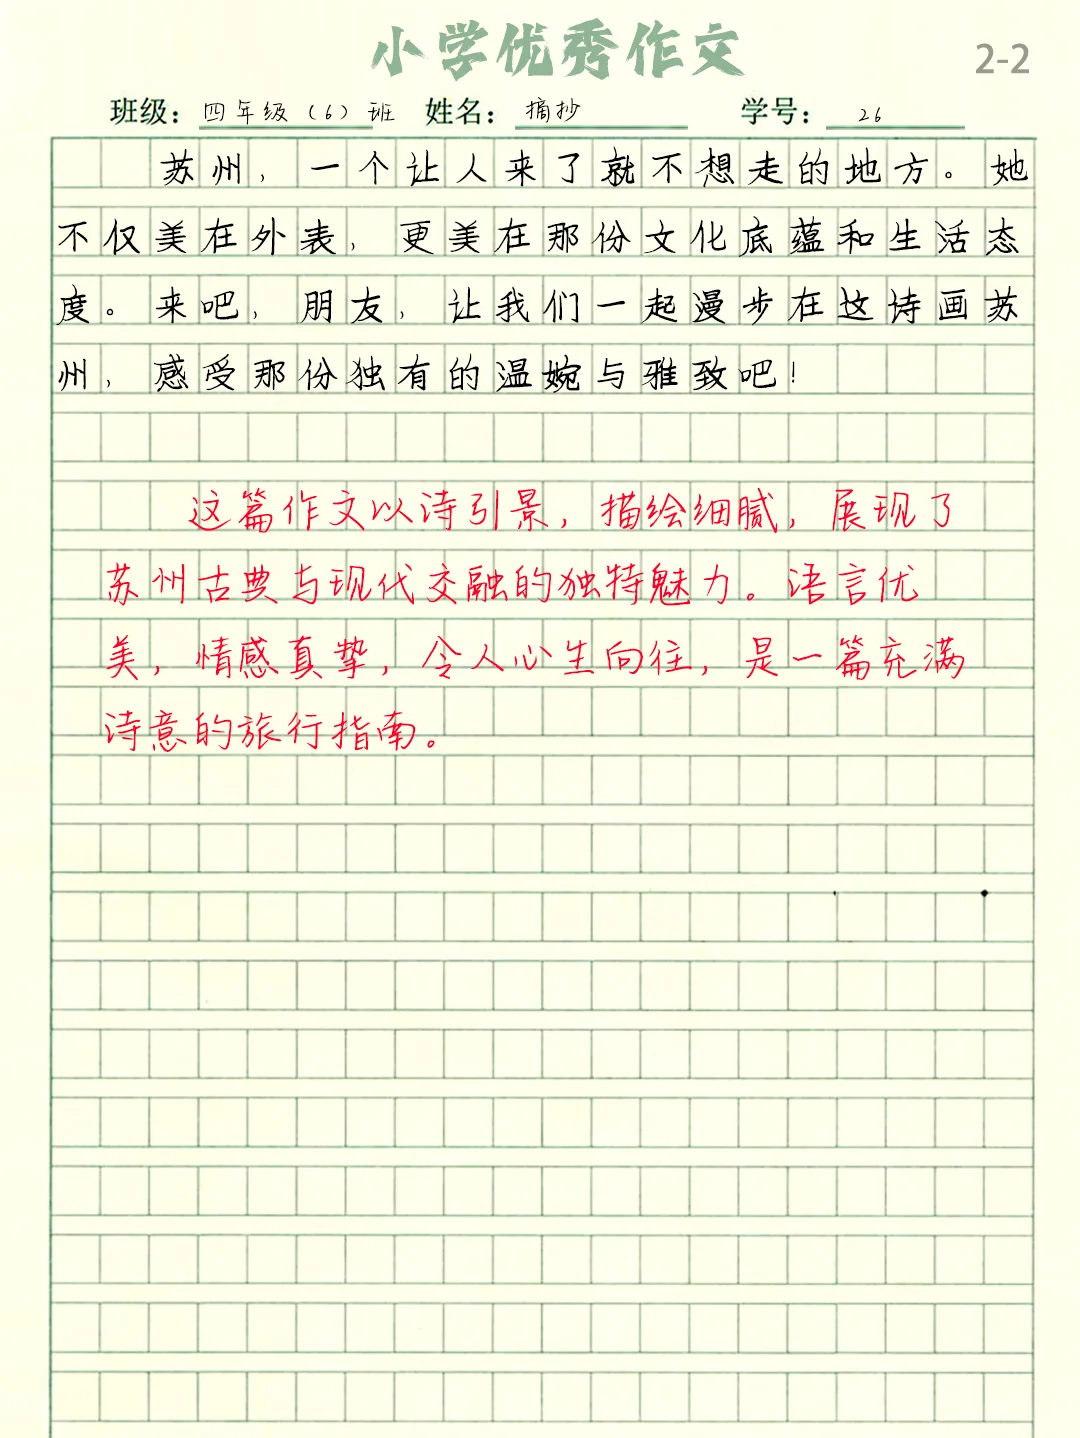 小学优秀作文
2-2
班级：四年级（6）班 姓名：摘抄 学号：26
苏州，一个让人来了就不想走的地方。她
不仅美在外表，更美在那份文化底蕴和生活态
度。来吧，朋友，让我们一起漫步在这诗画苏
州，感受那份独有的温婉与雅致吧！
这篇作文以诗引景，描绘细腻，展现了
苏州古典与现代交融的独特魅力。语言优
美，情感真挚，令人心生向往，是一篇充满
诗意的旅行指南。